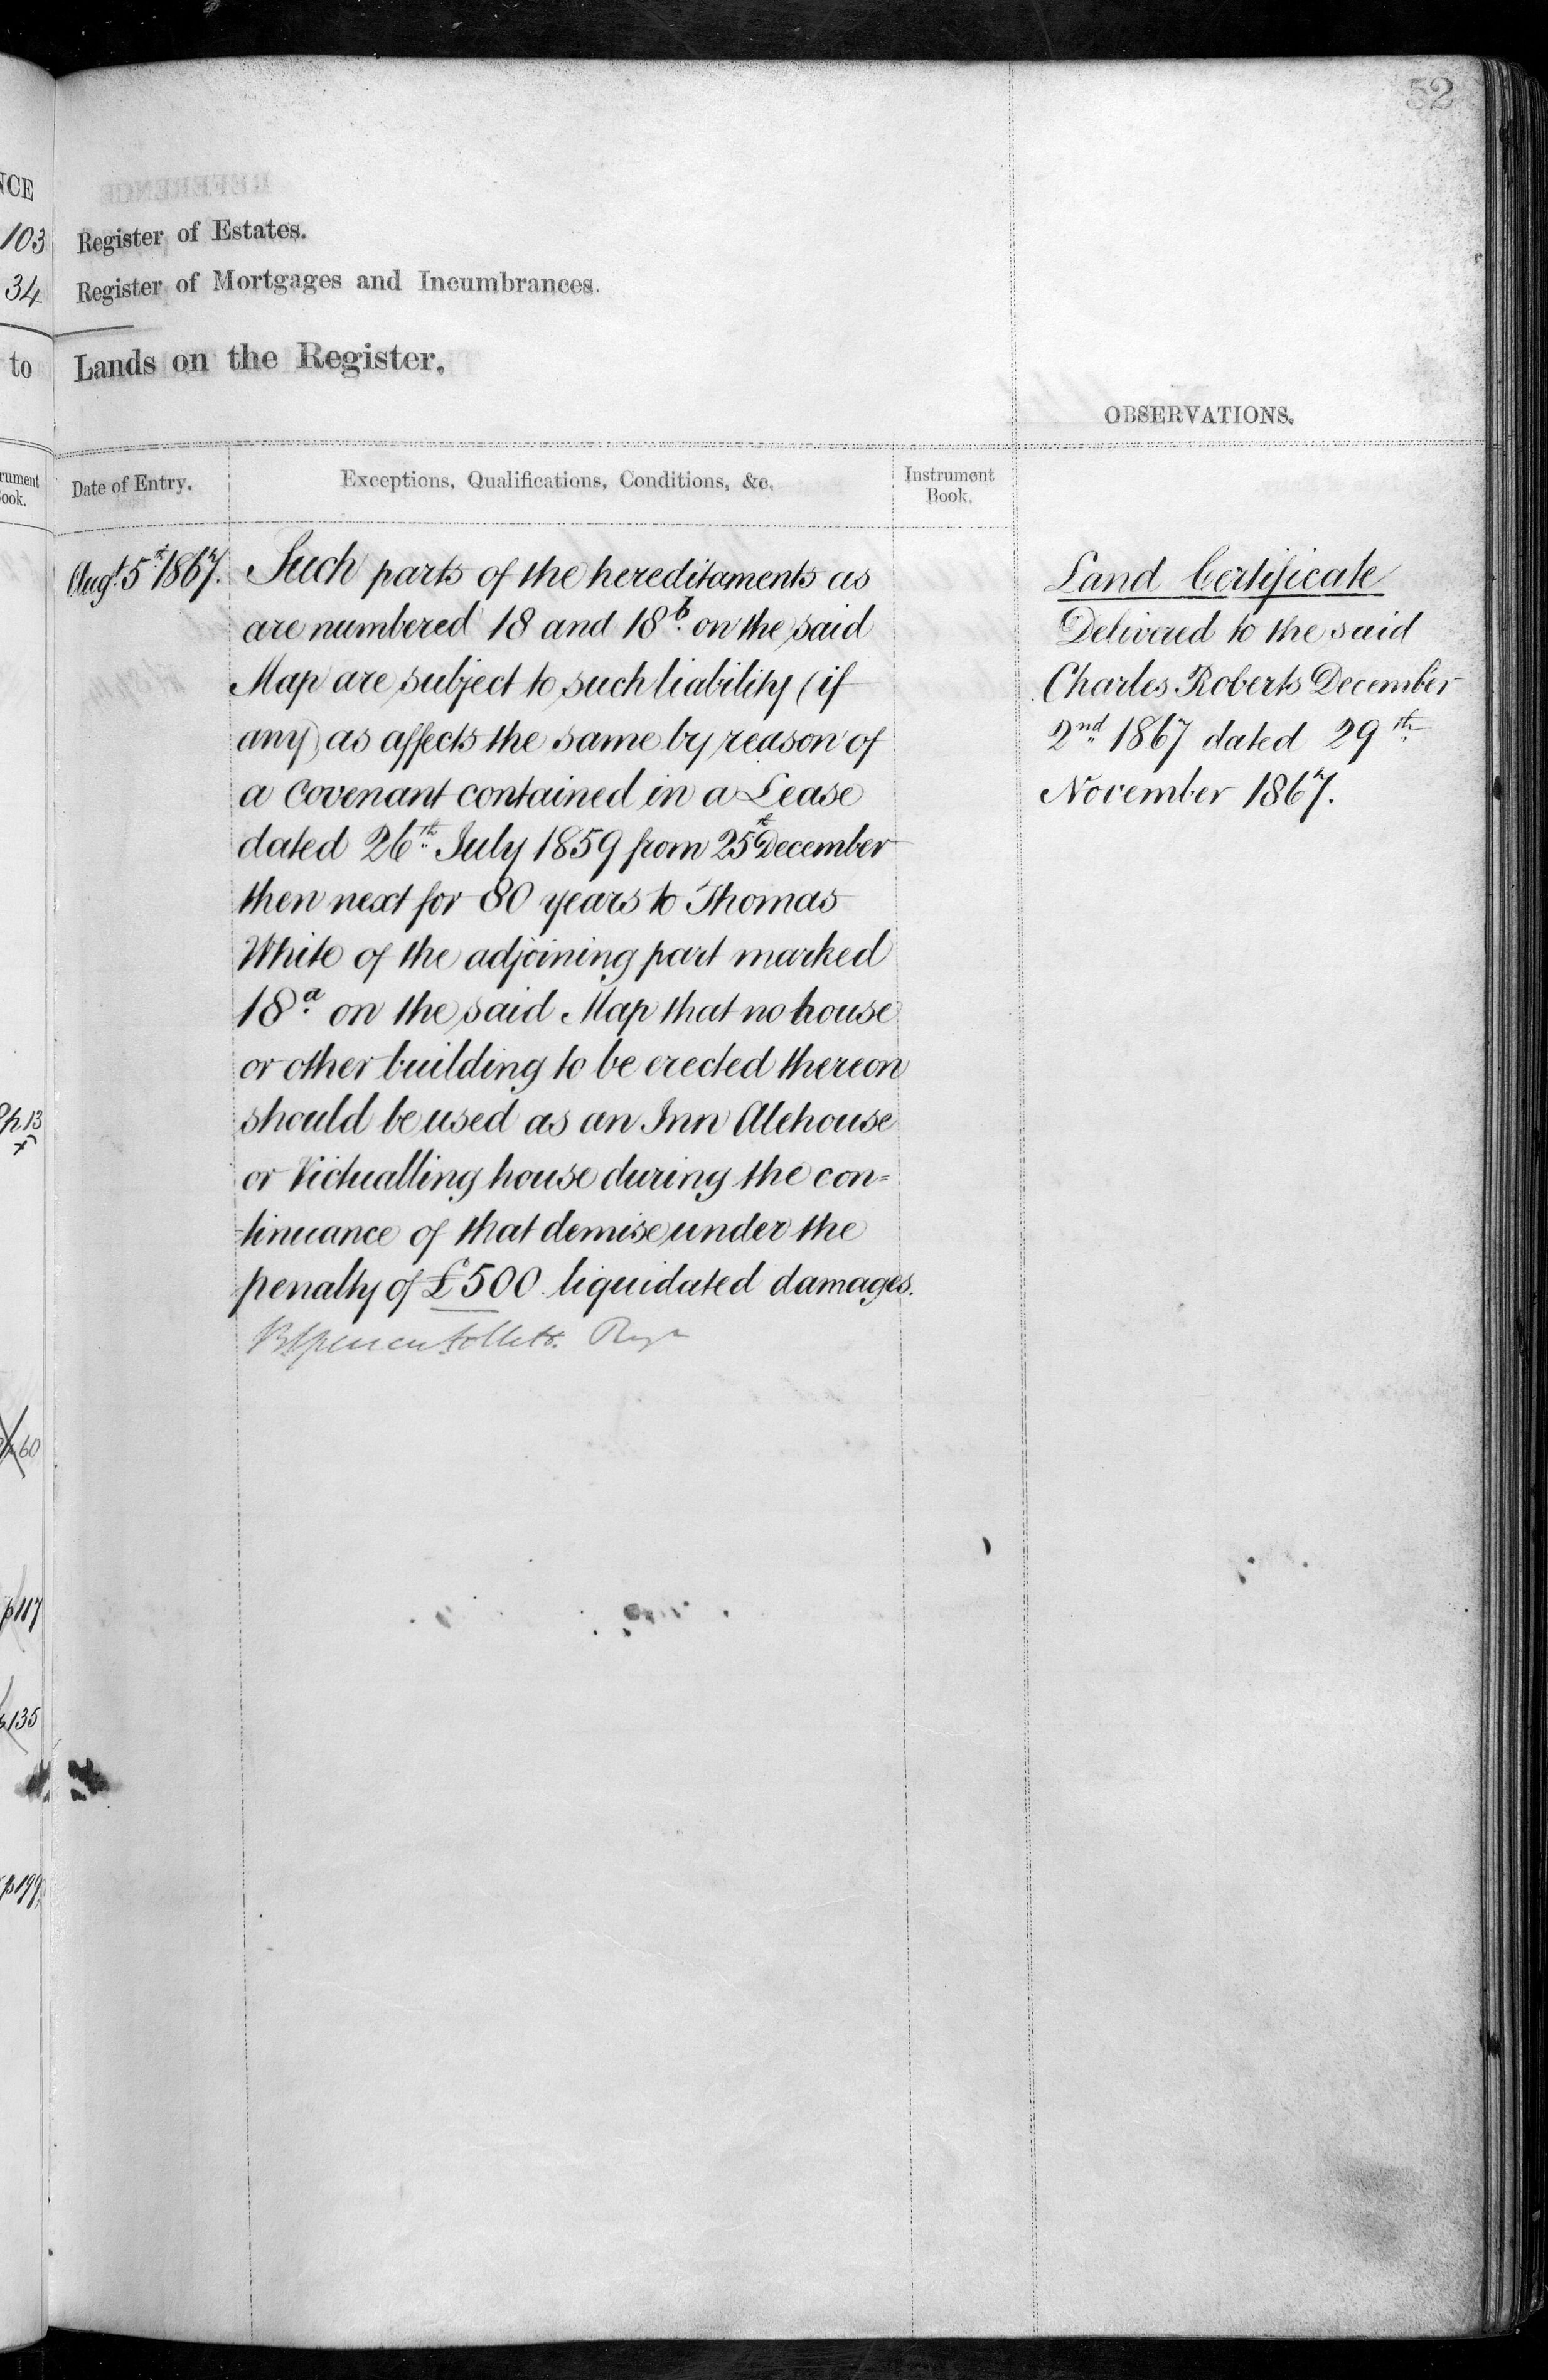 52
NCE
103
34
to
Register of Estates.
Register of Mortgages and Incumbrances.
Lands on the Register.
OBSERVATIONS.
rument
ook.
Date of Entry.
Exceptions, Qualifications, Conditions, &c.
Instrument
Book.
Augt. 5th 1867.
Such parts of the hereditaments as
are numbered 18 and 18b. on the said
Map are subject to such liability (if
any) as affects the same by reason of
a covenant contained in a Lease
dated 26th July 1859 from 25th December
then next for 80 years to Thomas
White of the adjoining part marked
18a. on the said Map that no house
or other building to be erected thereon
should be used as an Inn Alehouse
or Victualling house during the con=
-tinuance of that demise under the
penalty of £500 liquidated damages.
Land Certificate
Delivered to the said
Charles Roberts December
2nd 1867 dated 29th
November 1867.
p13
60
p117
p135
p199